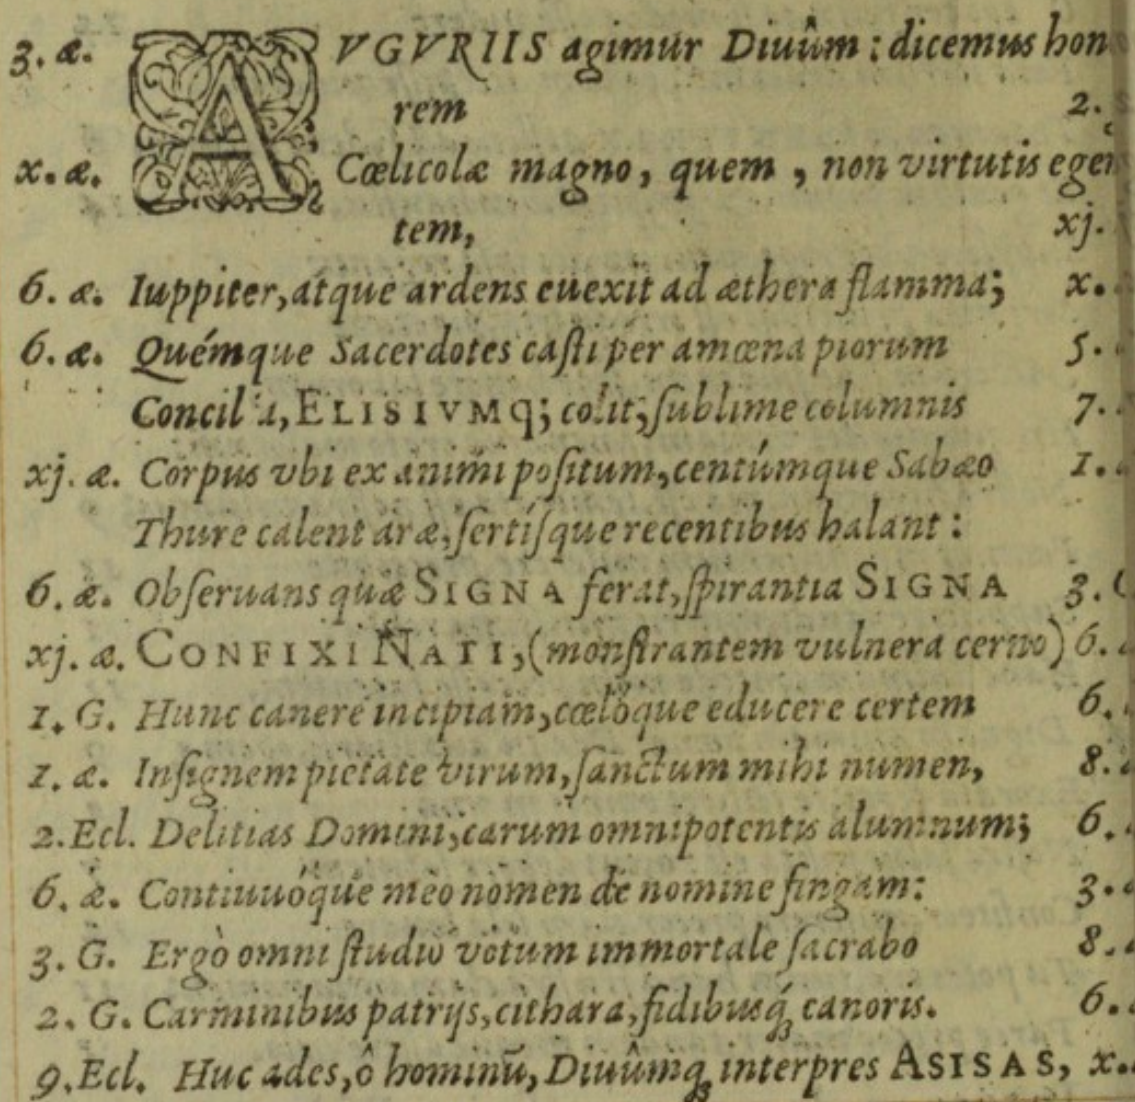 3. æ. AVGVRIIS agimur Diuûm : dicemus hon
rem 2.
x. æ. Cœlicolæ magno, quem , non virtutis egen
tem, xj.
6. æ. Iuppiter, atque ardens euexit ad æthera flamma; x.
6. æ. Quémque Sacerdotes casti per amœna piorum 5.
Concil a, ELISIVMq; colit, sublime columnis 7.
xj. æ. Corpus vbi exanimi positum, centúmque Sabæo 1.
Thure calent aræ, sertísque recentibus halant :
6. æ. Obseruans quæ SIGNA ferat, spirantia SIGNA 3. G
xj. æ. CONFIXI NATI, (monstrantem vulnera cerno) 6.
1. G. Hunc canere incipiam, cœlôque educere certem 6.
1. æ. Insignem pietate virum, sanctum mihi numen, 8.
2. Ecl. Delitias Domini, carum omnipotentis alumnum; 6.
6. æ. Contiuuóque meo nomen de nomine fingam: 3.
3. G. Ergò omni studio votum immortale sacrabo 8.
2. G. Carminibus patrijs, cithara, fidibusq́ canoris. 6.
9. Ecl. Huc ades, ô hominũ, Diuûmq interpres ASISAS, x.